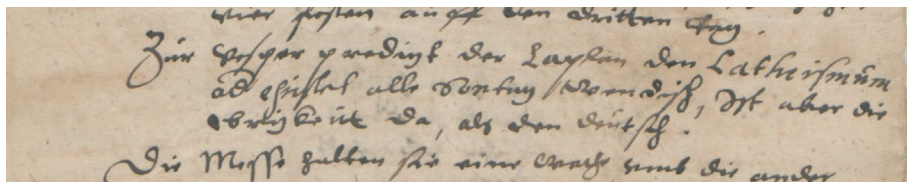 vier festen auff den dritten tag.
Zur vesper predigt der Caplan den Catheismum
od epistel alle Sontag Wendisch, Ist aber die
obrigkeitt da, als den deutsch.
Die Messe halten sie eine Woche umb die ander